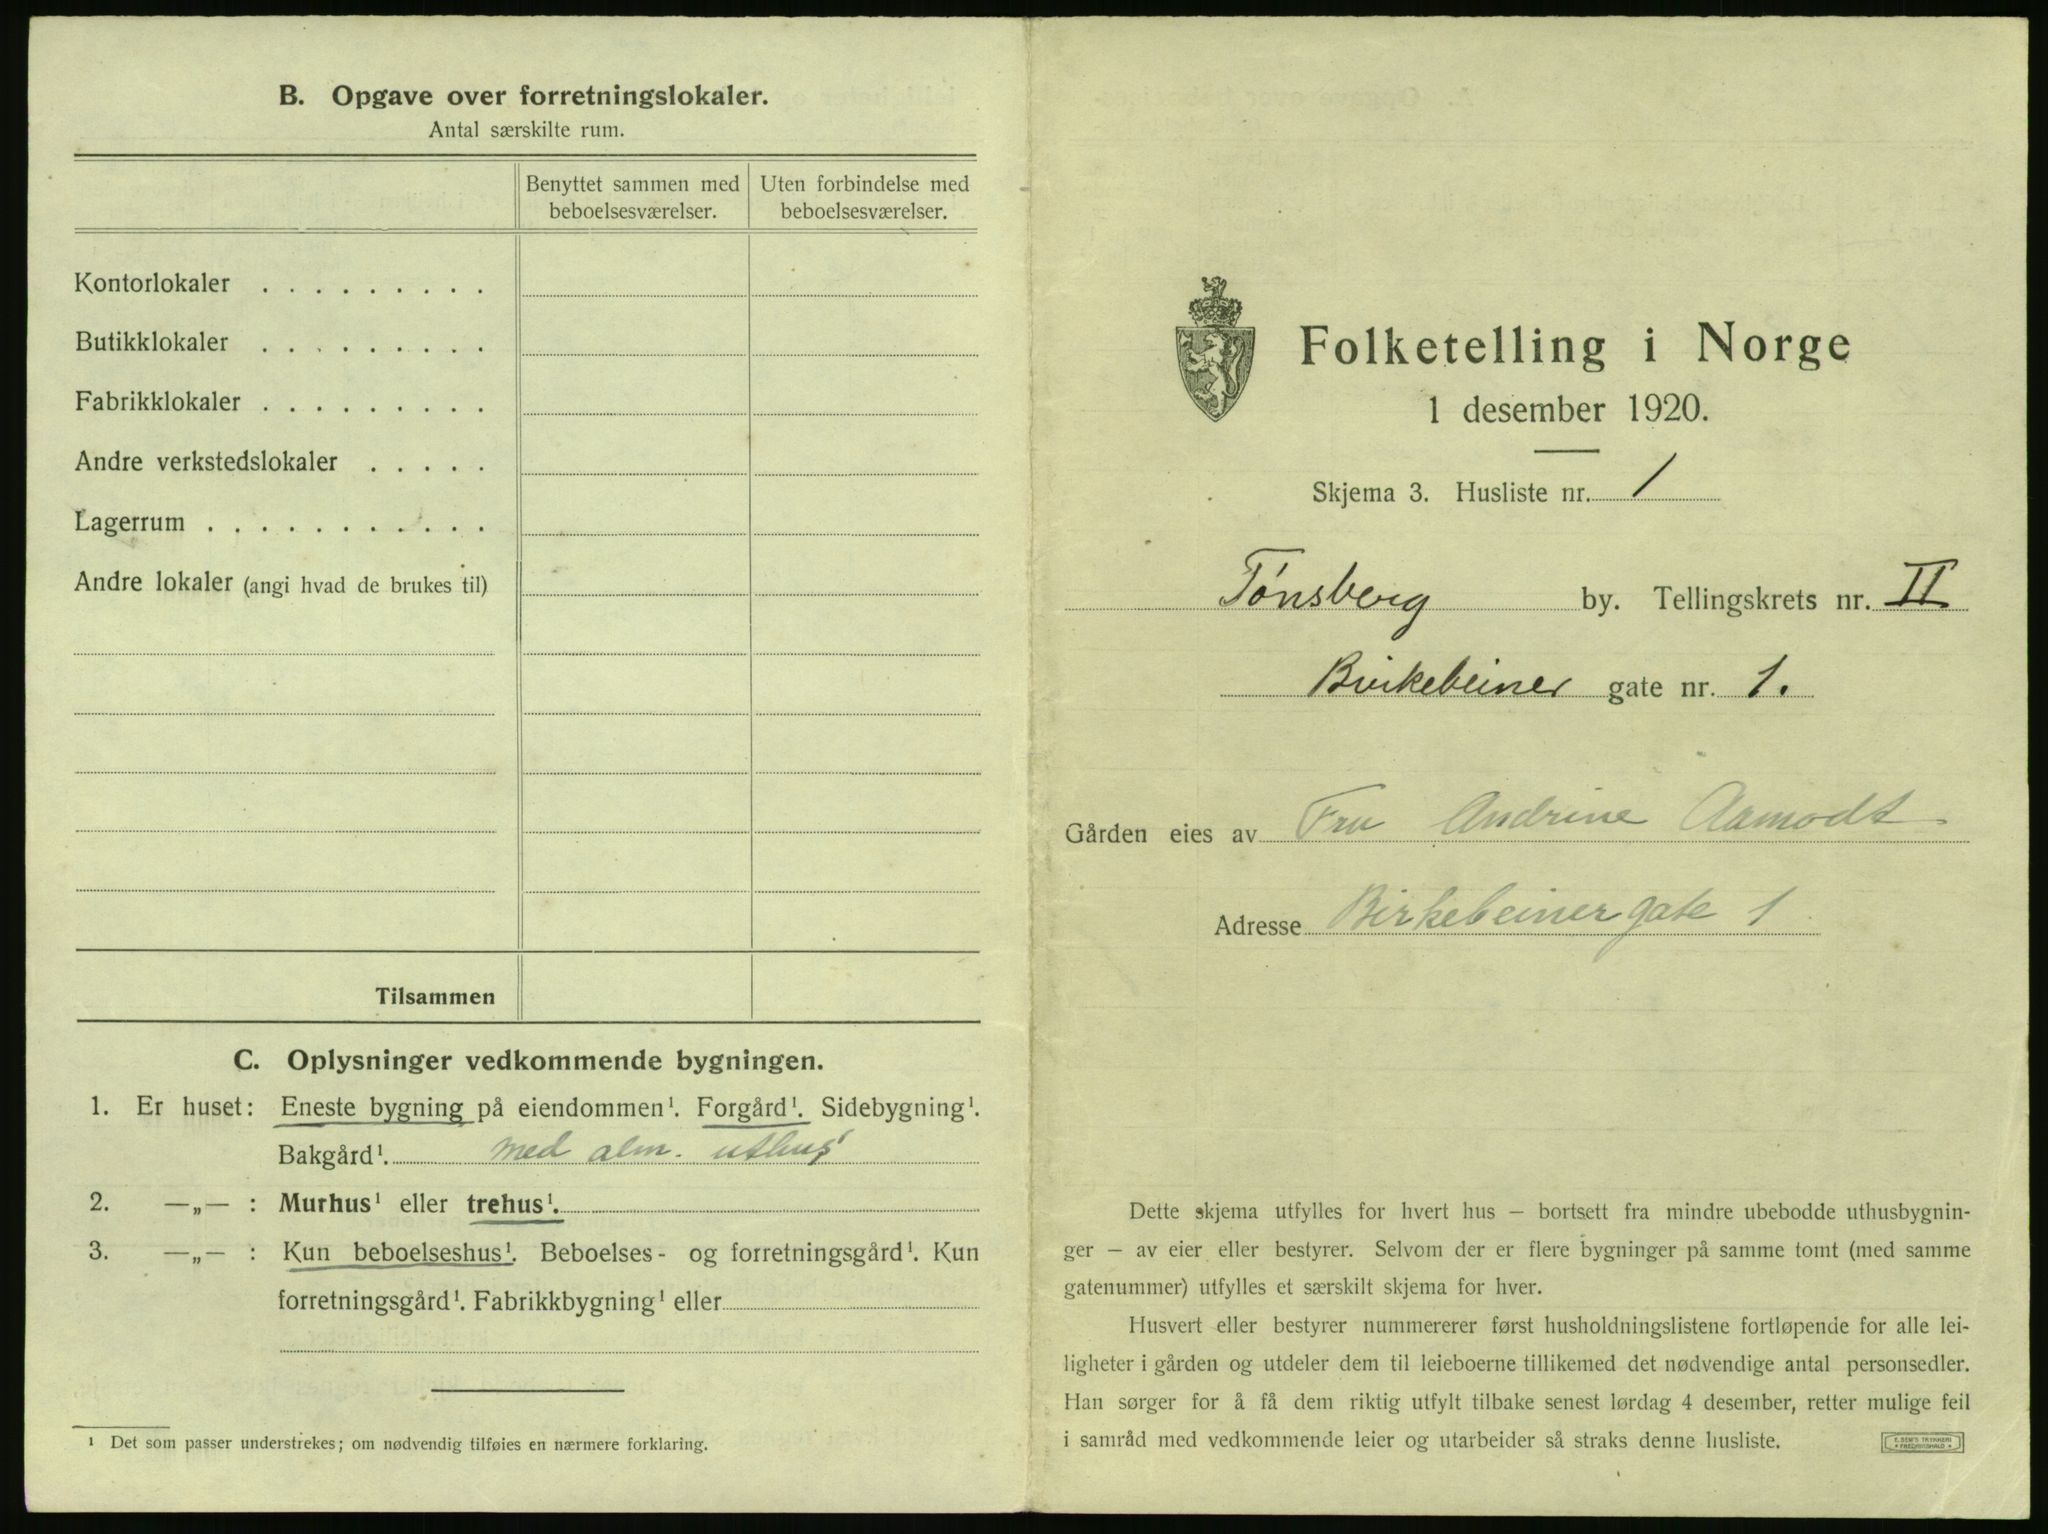 B. Opgave over forretningslokaler.
Antal særskilte rum.
Benyttet sammen med beboelsesværelser.
Uten forbindelse med beboelsesværelser.
Kontorlokaler . . . . . . . . .
Butikklokaler . . . . . . . . .
Fabrikklokaler . . . . . . . . .
Andre verkstedslokaler . . . . .
Lagerrum . . . . . . . . . . .
Andre lokaler (angi hvad de brukes til)
Tilsammen
C. Oplysninger vedkommende bygningen.
1. Er huset: Eneste bygning på eiendommen¹. Forgård¹. Sidebygning¹.
Bakgård¹. med alm. uthus
2. —„— : Murhus¹ eller trehus¹.
3. —„— : Kun beboelseshus¹. Beboelses- og forretningsgård¹. Kun
forretningsgård¹. Fabrikkbygning¹ eller
¹ Det som passer understrekes; om nødvendig tilføies en nærmere forklaring.
Folketelling i Norge
1 desember 1920.
Skjema 3. Husliste nr. 1
Tønsberg by. Tellingskrets nr. II
Birkebeiner gate nr. 1.
Gården eies av Fru Andrine Aamodt
Adresse Birkebeinergate 1
Dette skjema utfylles for hvert hus – bortsett fra mindre ubebodde uthusbygnin-
ger – av eier eller bestyrer. Selvom der er flere bygninger på samme tomt (med samme
gatenummer) utfylles et særskilt skjema for hver.
Husvert eller bestyrer nummererer først husholdningslistene fortløpende for alle lei-
ligheter i gården og utdeler dem til leieboerne tillikemed det nødvendige antal personsedler.
Han sørger for å få dem riktig utfylt tilbake senest lørdag 4 desember, retter mulige feil
i samråd med vedkommende leier og utarbeider så straks denne husliste.
E. SEM'S TRYKKERI
• FREDRIKSHALD •